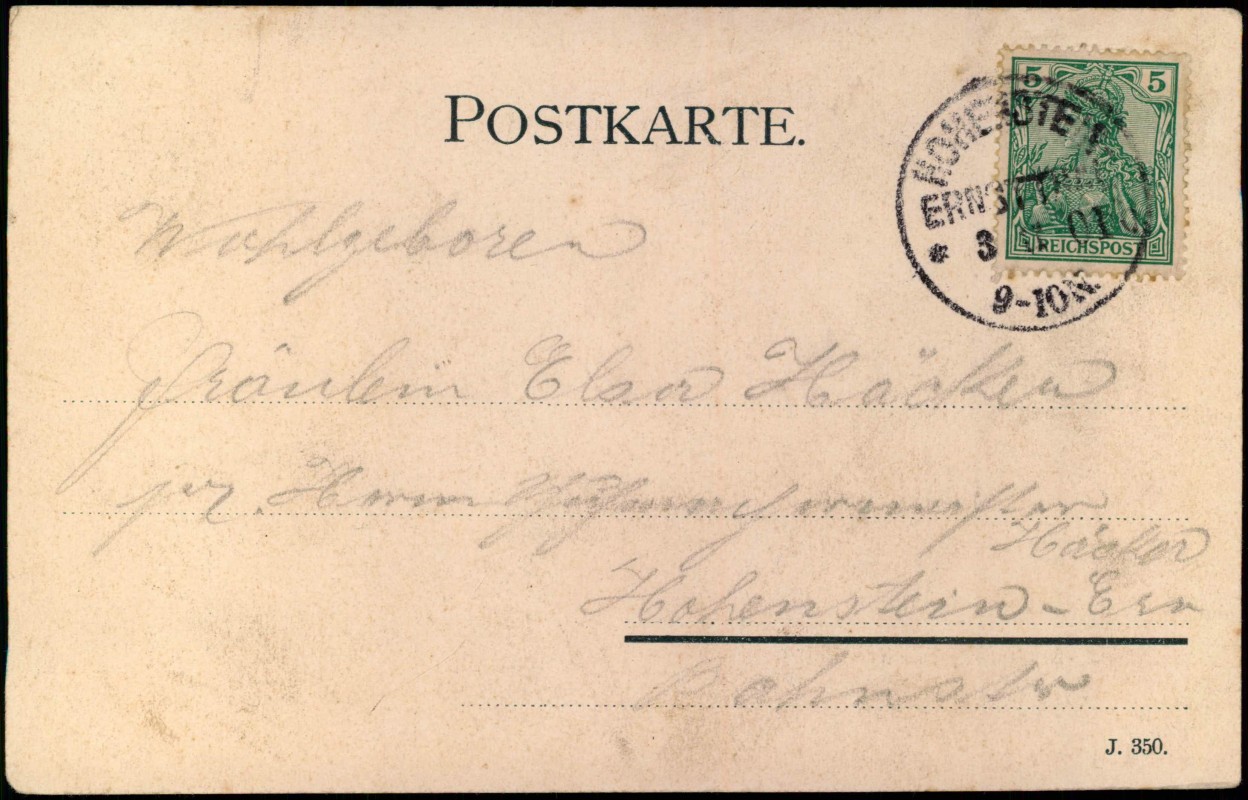 POSTKARTE.
5 5
REICHSPOST
HOHENSTEIN
ERNSTTHAL
* 3 01
9-10N.
Wohlgeboren
Fräulein Elsa Häcker
pr. Herrn
Häcker
Hohenstein-Ern
Bahnstr
J. 350.